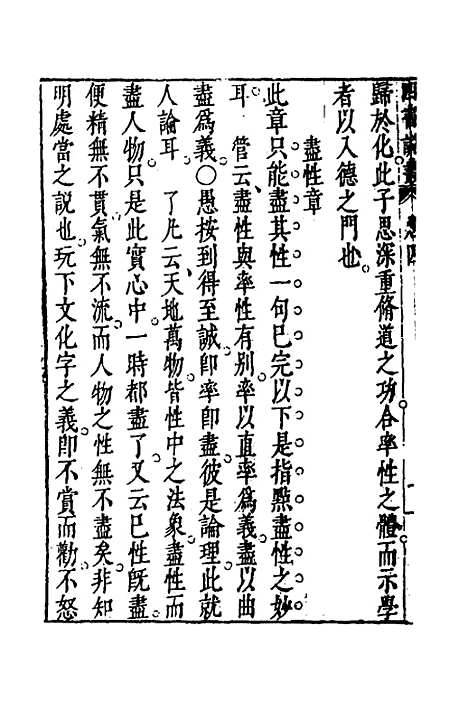 歸於化此子思深重脩道之功合率性之體而示學
者以入德之門也
盡性章
此章只能盡其性一句已完以下是指點盡性之妙
耳 管云盡性與率性有別率以直率爲義盡以曲
盡爲義〇愚按到得至誠卽率卽盡彼是論理此就
人論耳 了凡云天地萬物皆性中之法象盡性而
盡人物只是此實心中一時都盡了又云已性旣盡
便精無不貫氣無不流而人物之性無不盡矣非知
明處當之說也玩下文化字之義卽不賞而勸不怒